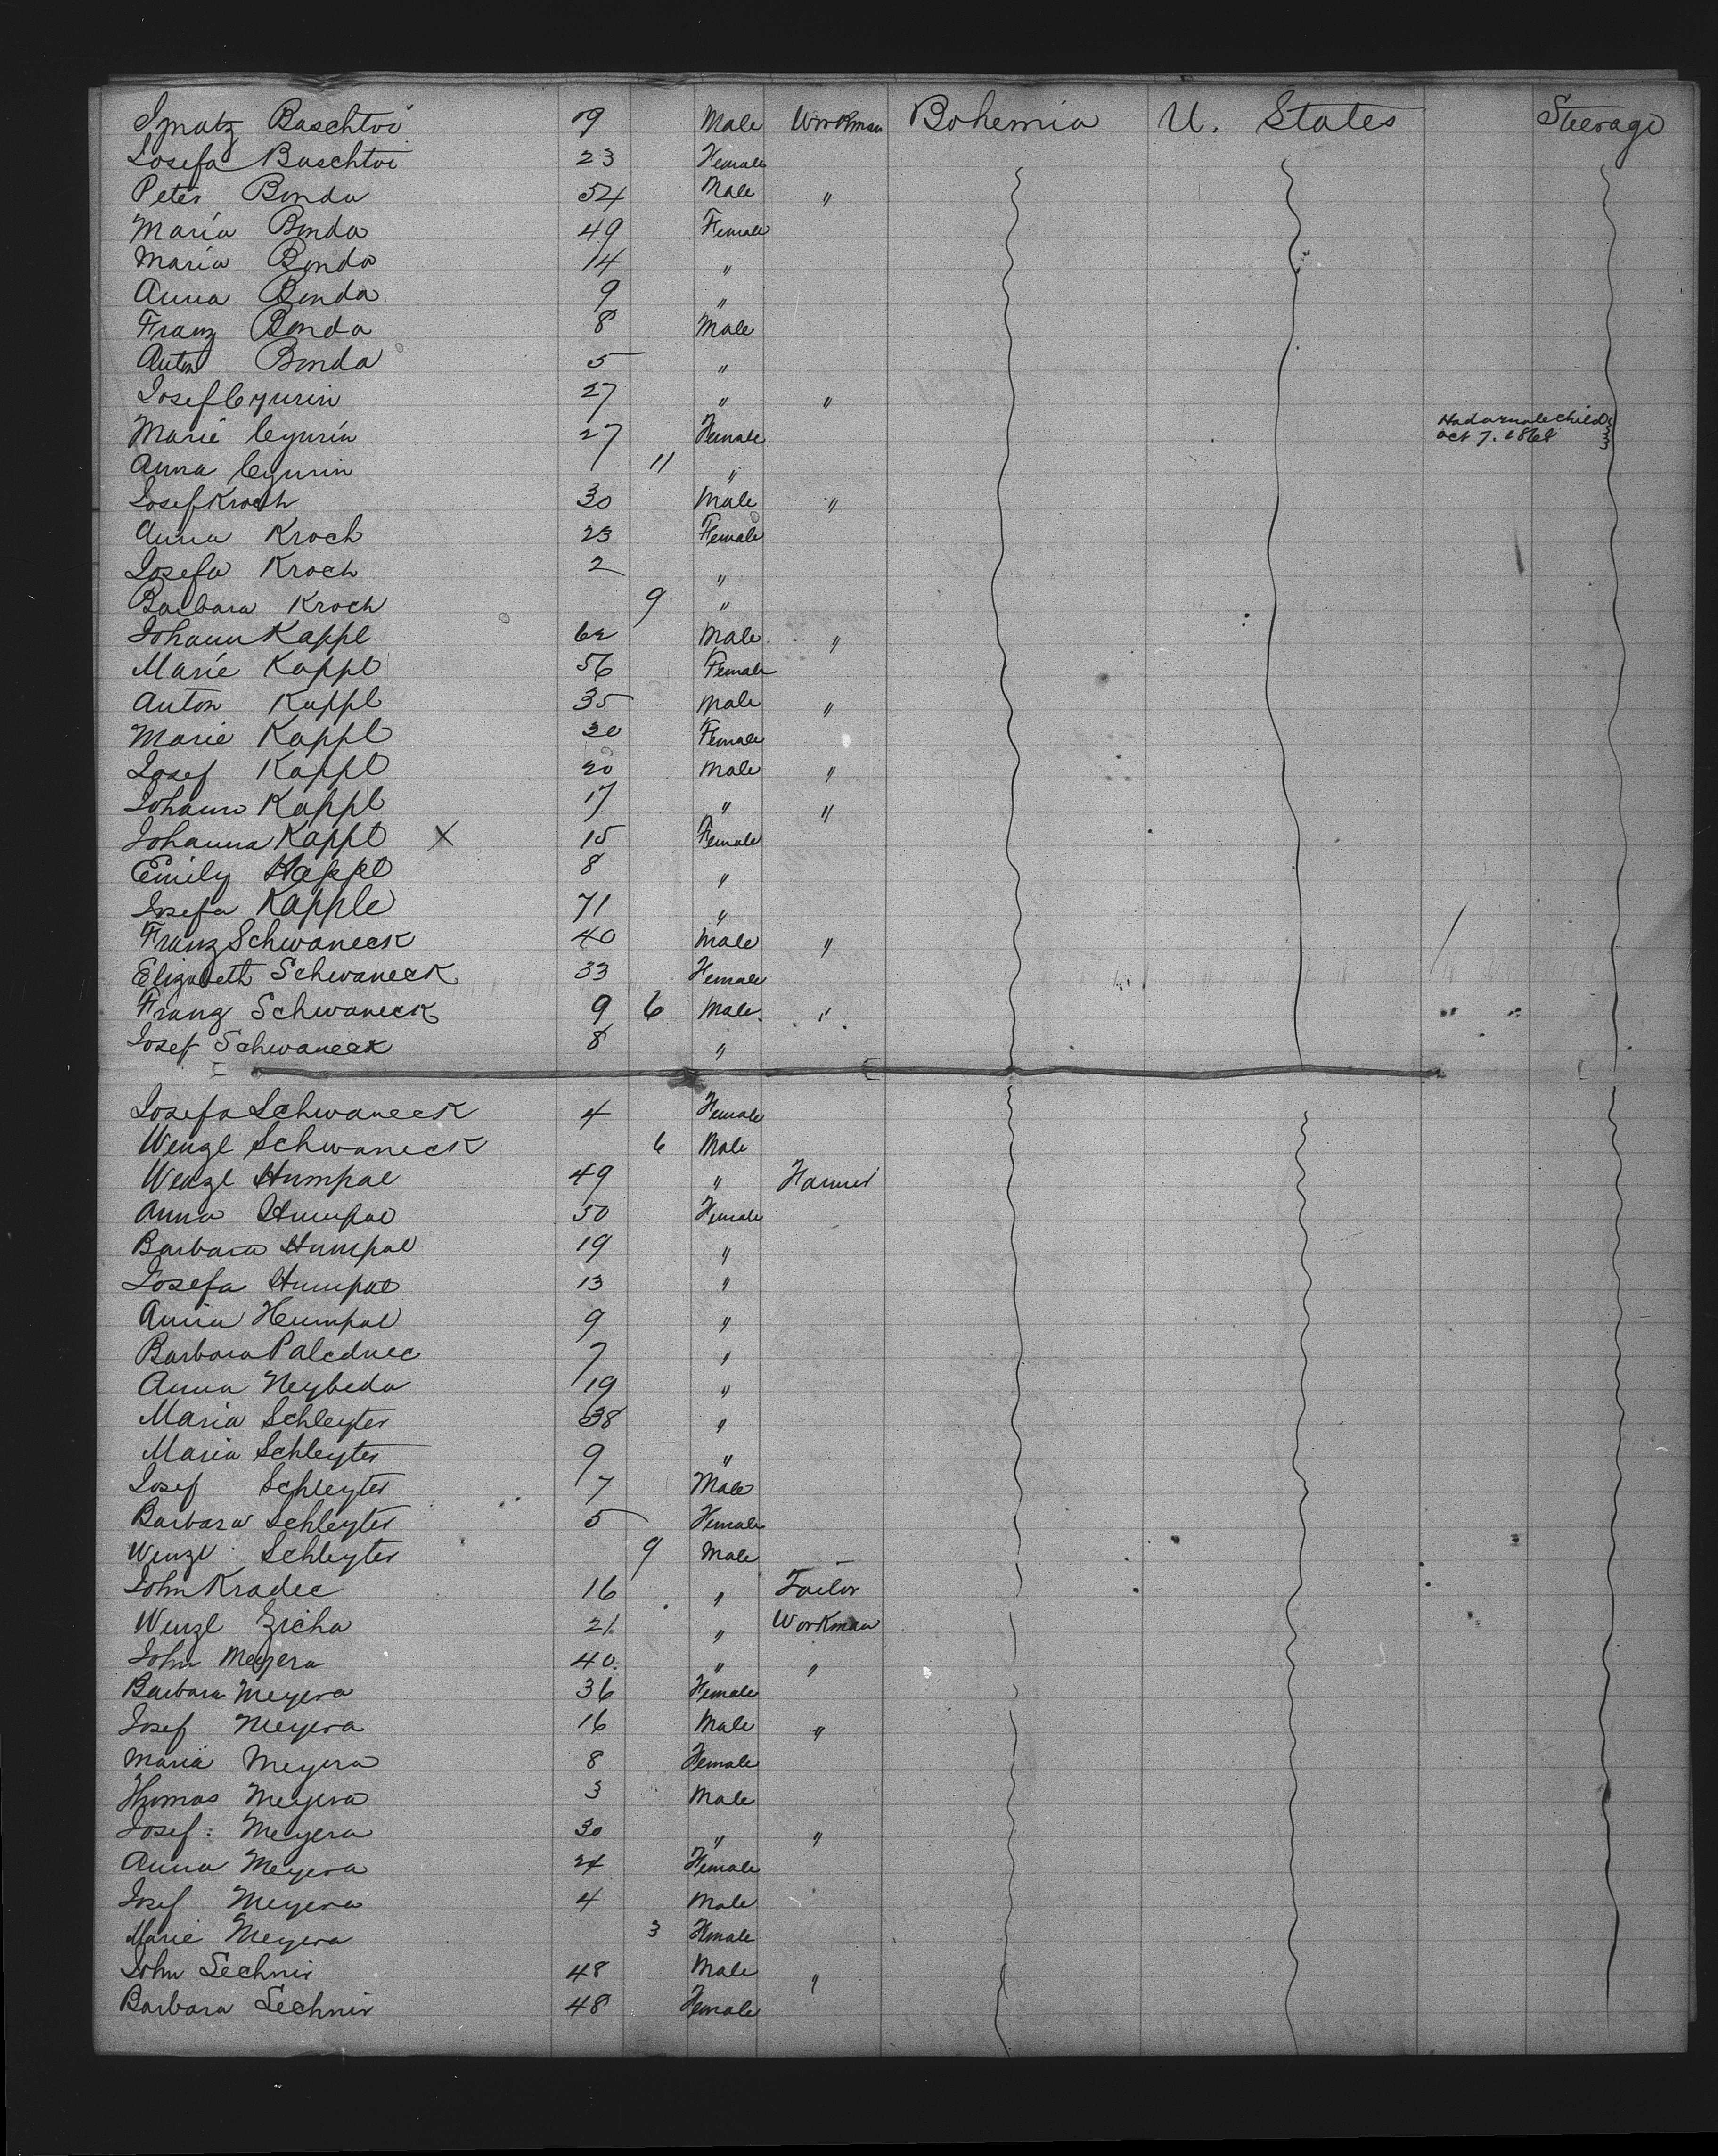 Ignatz Baschtoi 19 Male Workman Bohemia U. States Steerage
Josefa Baschtoi 23 Female
Peter Bonda 54 Male "
Maria Bonda 49 Female
Maria Bonda 14 "
Anna Bonda 9 "
Franz Bonda 8 Male
Anton Bonda 5 "
Josef Cyurin 27 " "
Marie Cyurin 27 Female Had a male child
oct 7. 1868
Anna Cyurin 11 "
Josef Kroch 30 Male "
Anna Kroch 23 Female
Josefa Kroch 2 "
Barbara Kroch 9 "
Johann Kappl 62 Male "
Marie Kappl 56 Female
Anton Kappl 35 Male "
Marie Kappl 20 Female
Josef Kappl 20 Male "
Johann Kappl 17 " "
Johanna Kappl X 15 Female
Emily Kappl 8 "
Josefa Kapple 71 "
Franz Schwaneck 40 Male "
Elizabeth Schwaneck 33 Female
Franz Schwaneck 9 6 Male "
Josef Schwaneck 8 "
Josefa Schwaneck 4 Female
Wenzl Schwaneck 6 Male
Wenzl Humpal 49 " Farmer
Anna Humpal 50 Female
Barbara Humpal 19 "
Josefa Humpal 13 "
Anna Humpal 9 "
Barbara Palednec 7 "
Anna Neybeda 19 "
Maria Schleyter 38 "
Maria Schleyter 9 "
Josef Schleyter 7 Male
Barbara Schleyter 5 Female
Wenzl Schleyter 9 Male
John Kradec 16 " Tailor
Wenzl Zicha 21 " Workman
John Meyera 40 " "
Barbara Meyera 36 Female
Josef Meyera 16 Male "
Maria Meyera 8 Female
Thomas Meyera 3 Male
Josef Meyera 30 " "
Anna Meyera 24 Female
Josef Meyera 4 Male
Marie Meyera 3 Female
John Sechnir 48 Male "
Barbara Sechnir 48 Female